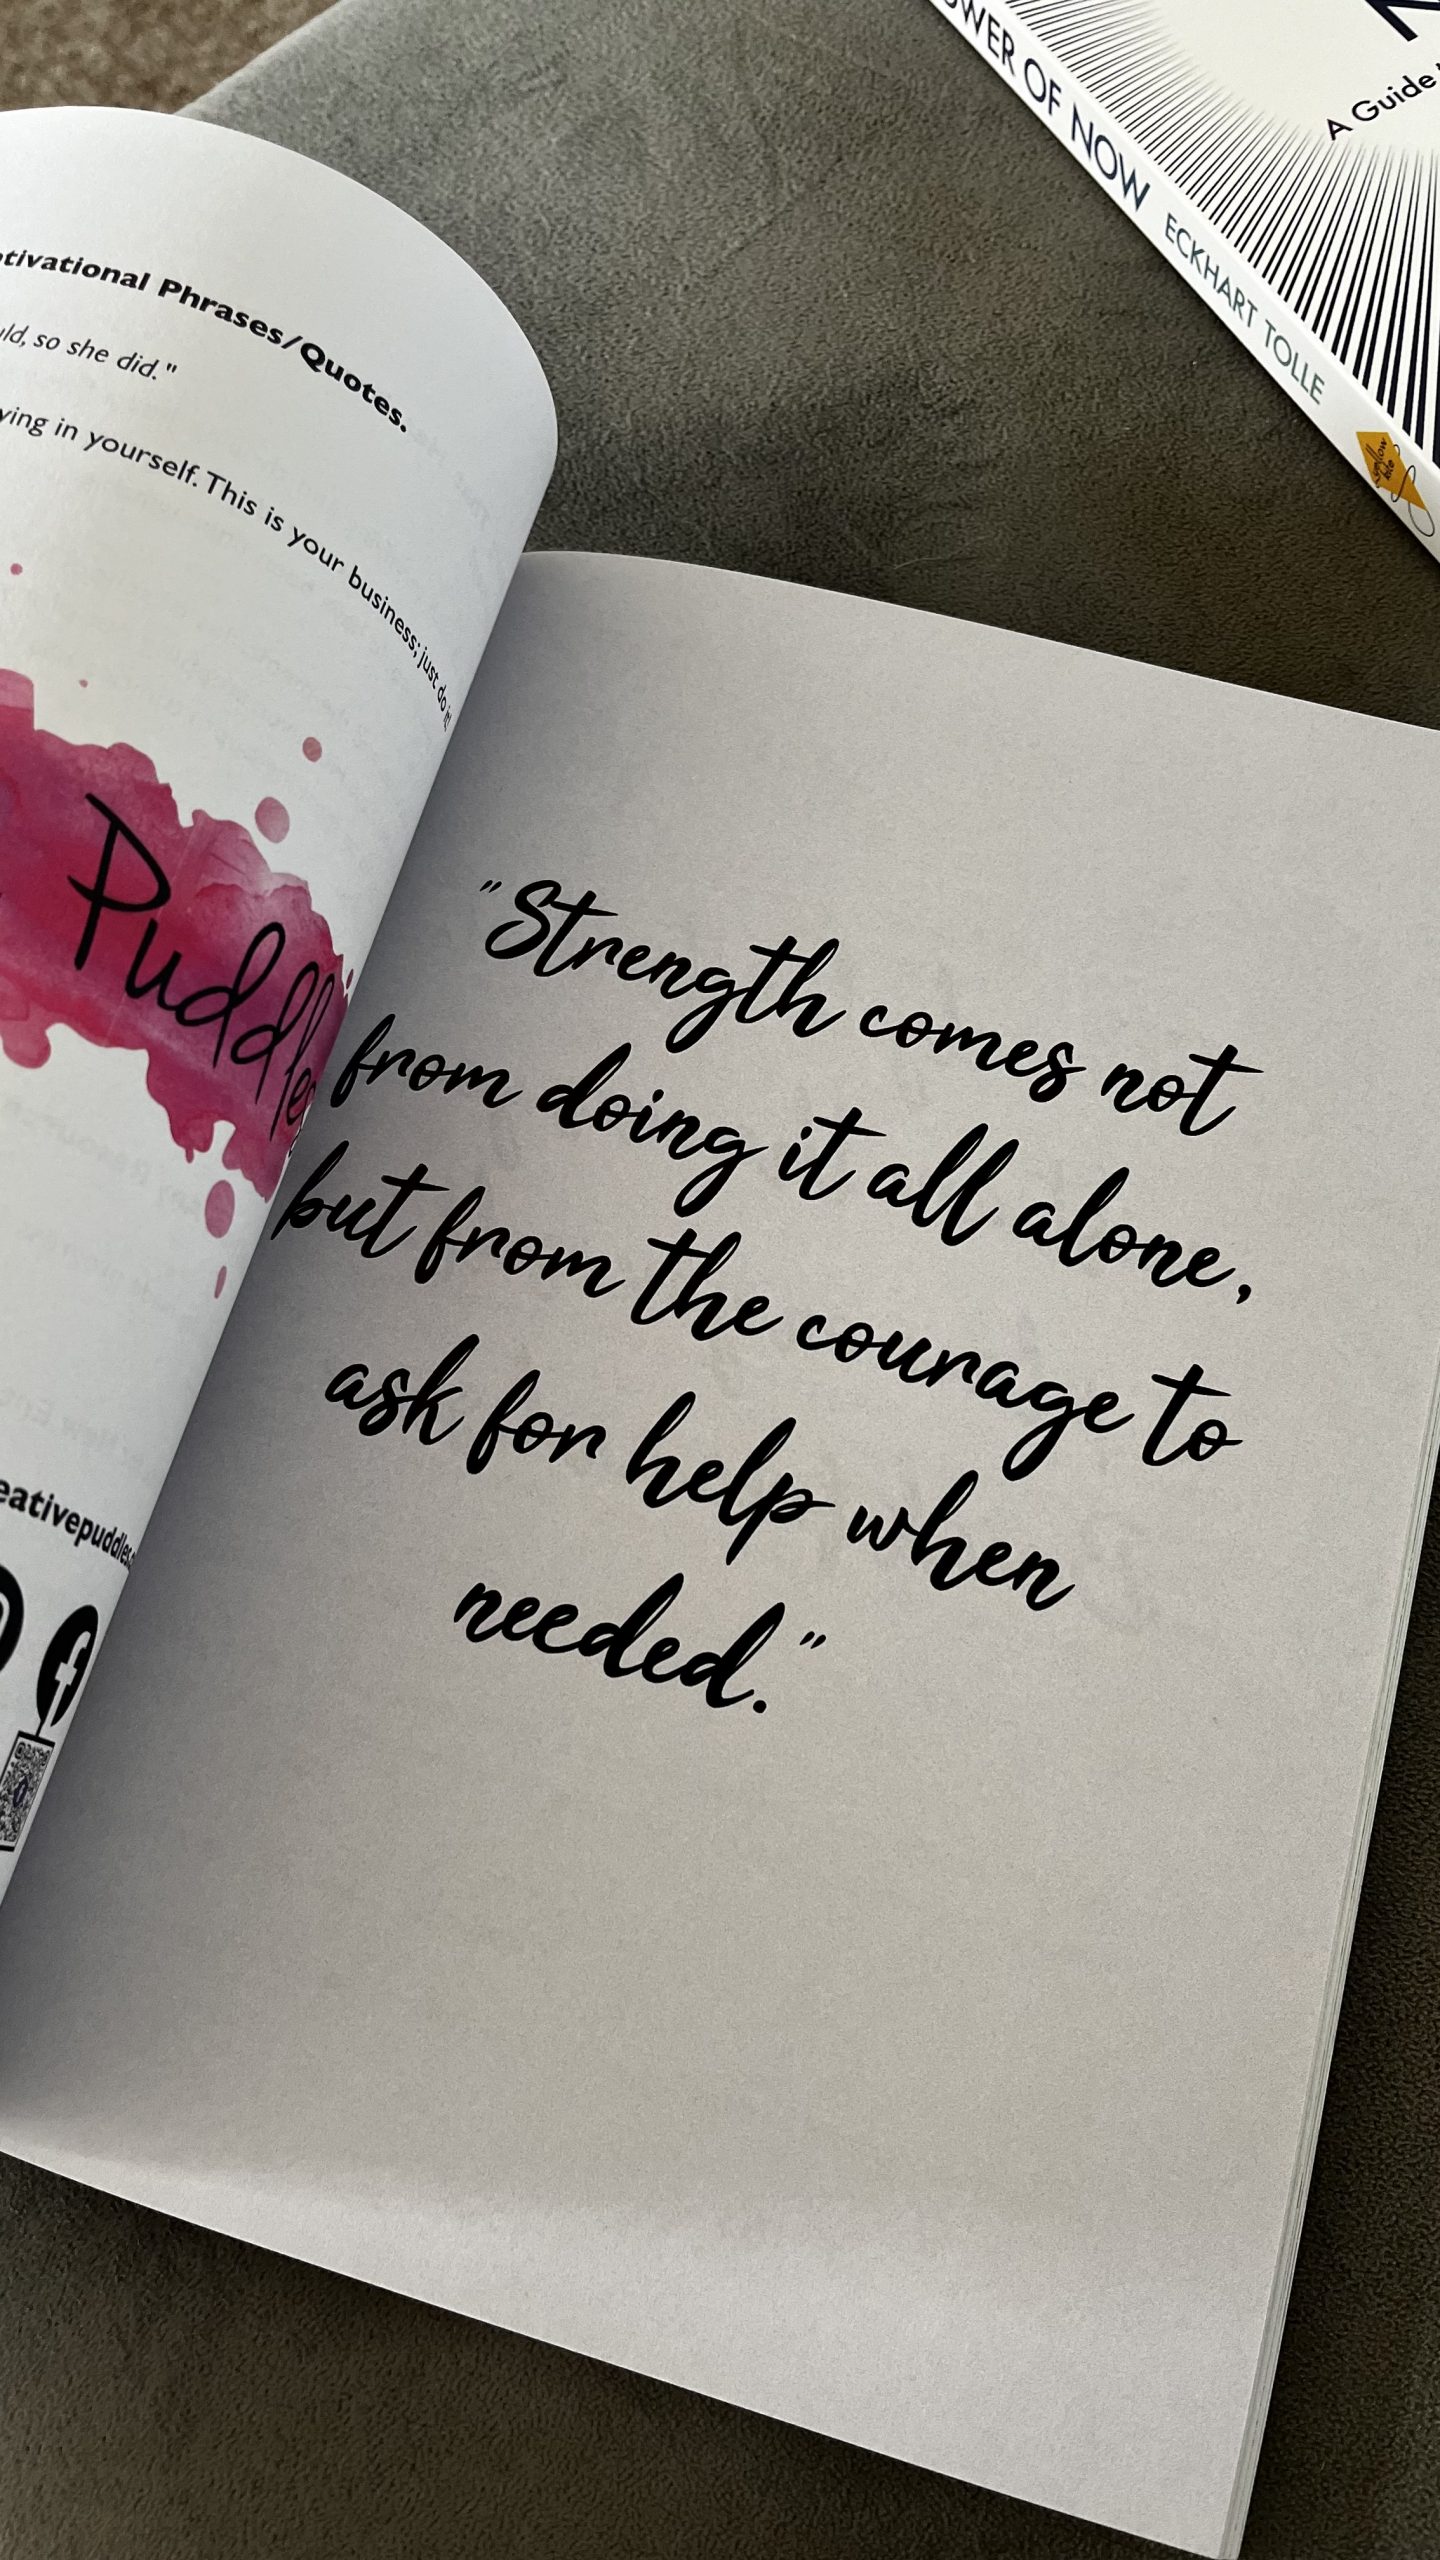 tivational Phrases/Quotes.
so she did."
in yourself. This is your business; just do it!
Puddles
"Strength comes not
from doing it all alone,
but from the courage to
ask for help when
needed."
OF NOW ECKHART TOLLE
A Guide
yellow kite